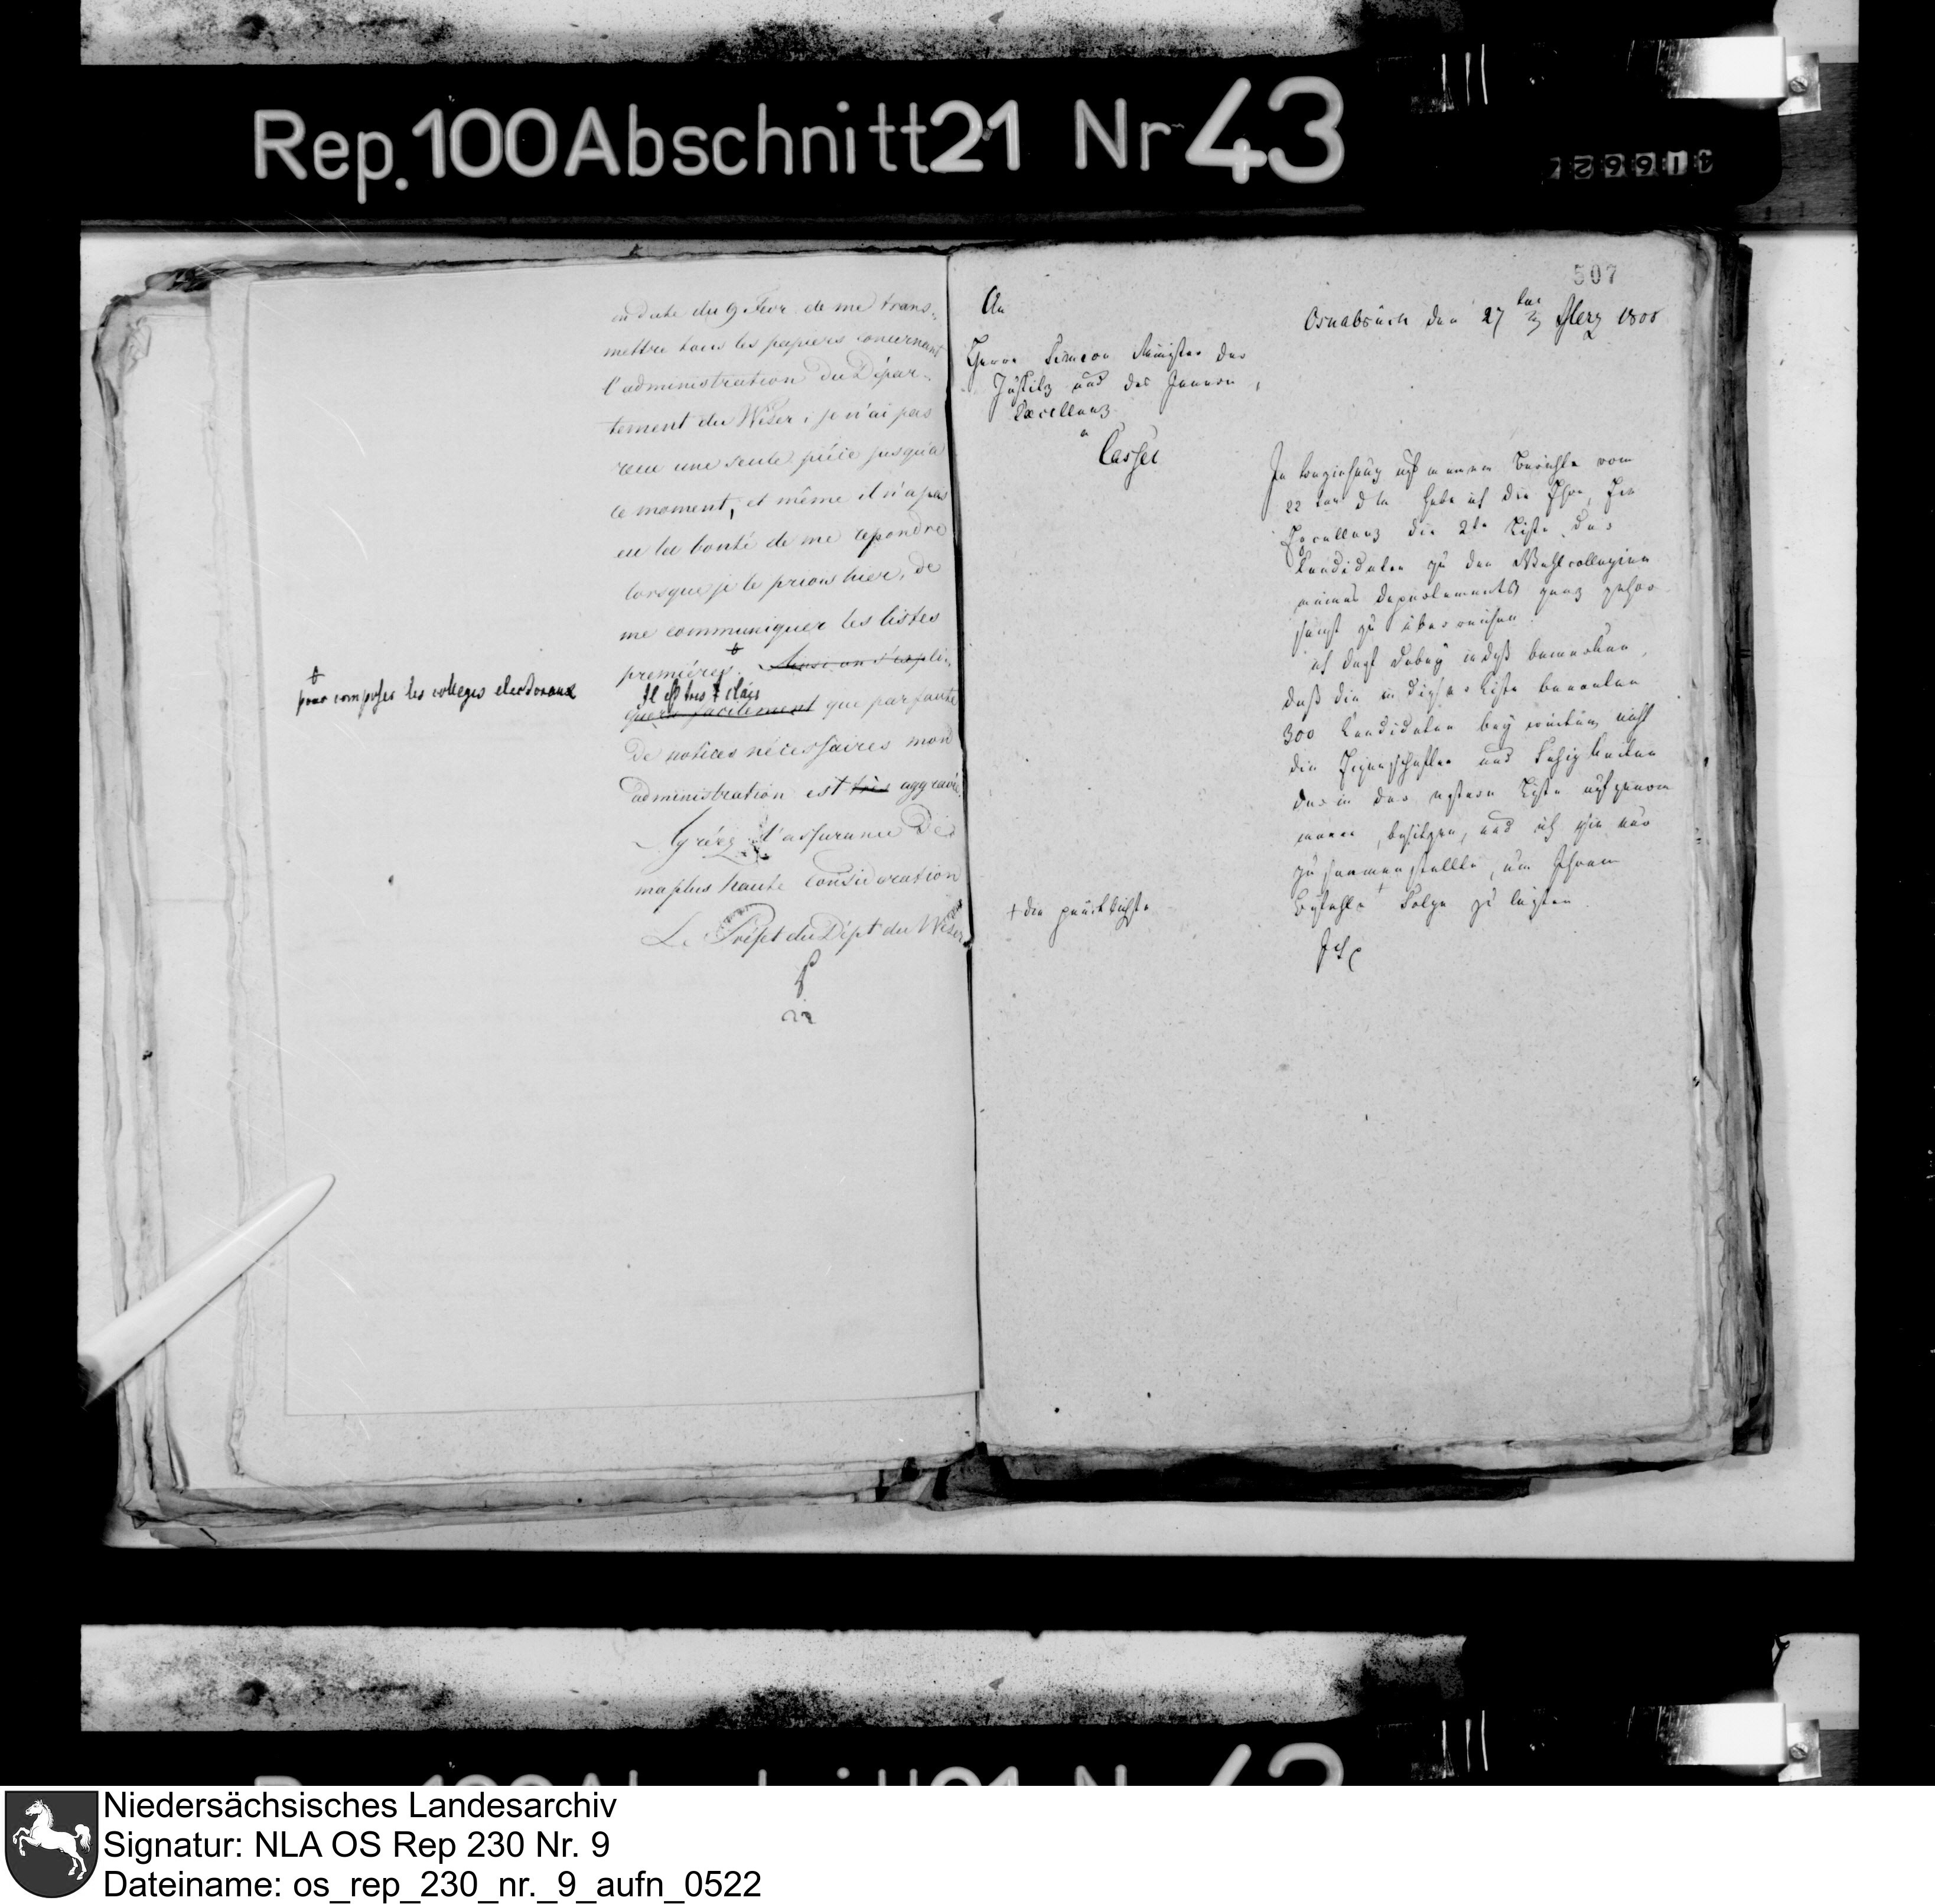 Rep.100Abschnitt21 Nr 43
en date du 9 Fevr. de me trans-
mettre tous les papiers concernant
l'administration du Dépar-
tement du Weser, je n'ai pas
reçu une seule pièce jusqu'à
ce moment, et même il n'a pas
eu la bonté de me repondre
lorsque je le priois hier, de
me communiquer les listes
premières. Ainsi on s'expli-
pour composer les colleges electoraux
Il est tres clair
quera facilement que par faute
de notices nécessaires mon
administration est très aggravée.
Agréez l'assurance de
ma plus haute Considération
Le Préfet du Dépt du Weser
507
An
Herrn Simeon Minister der
Justitz und des Innern,
Excellenz
Cassel
Osnabrück den 27 ten Merz 1808
In beziehung auf meinen Berichte vom
22 ten habe ich die Ehre, Ew
Excellenz die 2te Liste der
Candidaten zu den Wahlcollegien
meines Departements ganz gehor
samst zu überreichen.
ich darf dabey indeß bemerken,
daß die in dieser Liste benanten
300 Candidaten bey weitem nicht
die Eigenschaften und Fähigkeiten
der in der ersten Liste aufgenom
menen, besitzen, und ich sie nur
zusammenstellte, um Ihrem
Befehle + Folge zu leisten.
+ die pünktlichste
Niedersächsisches Landesarchiv
Signatur: NLA OS Rep 230 Nr. 9
Dateiname: os_rep_230_nr._9_aufn_0522